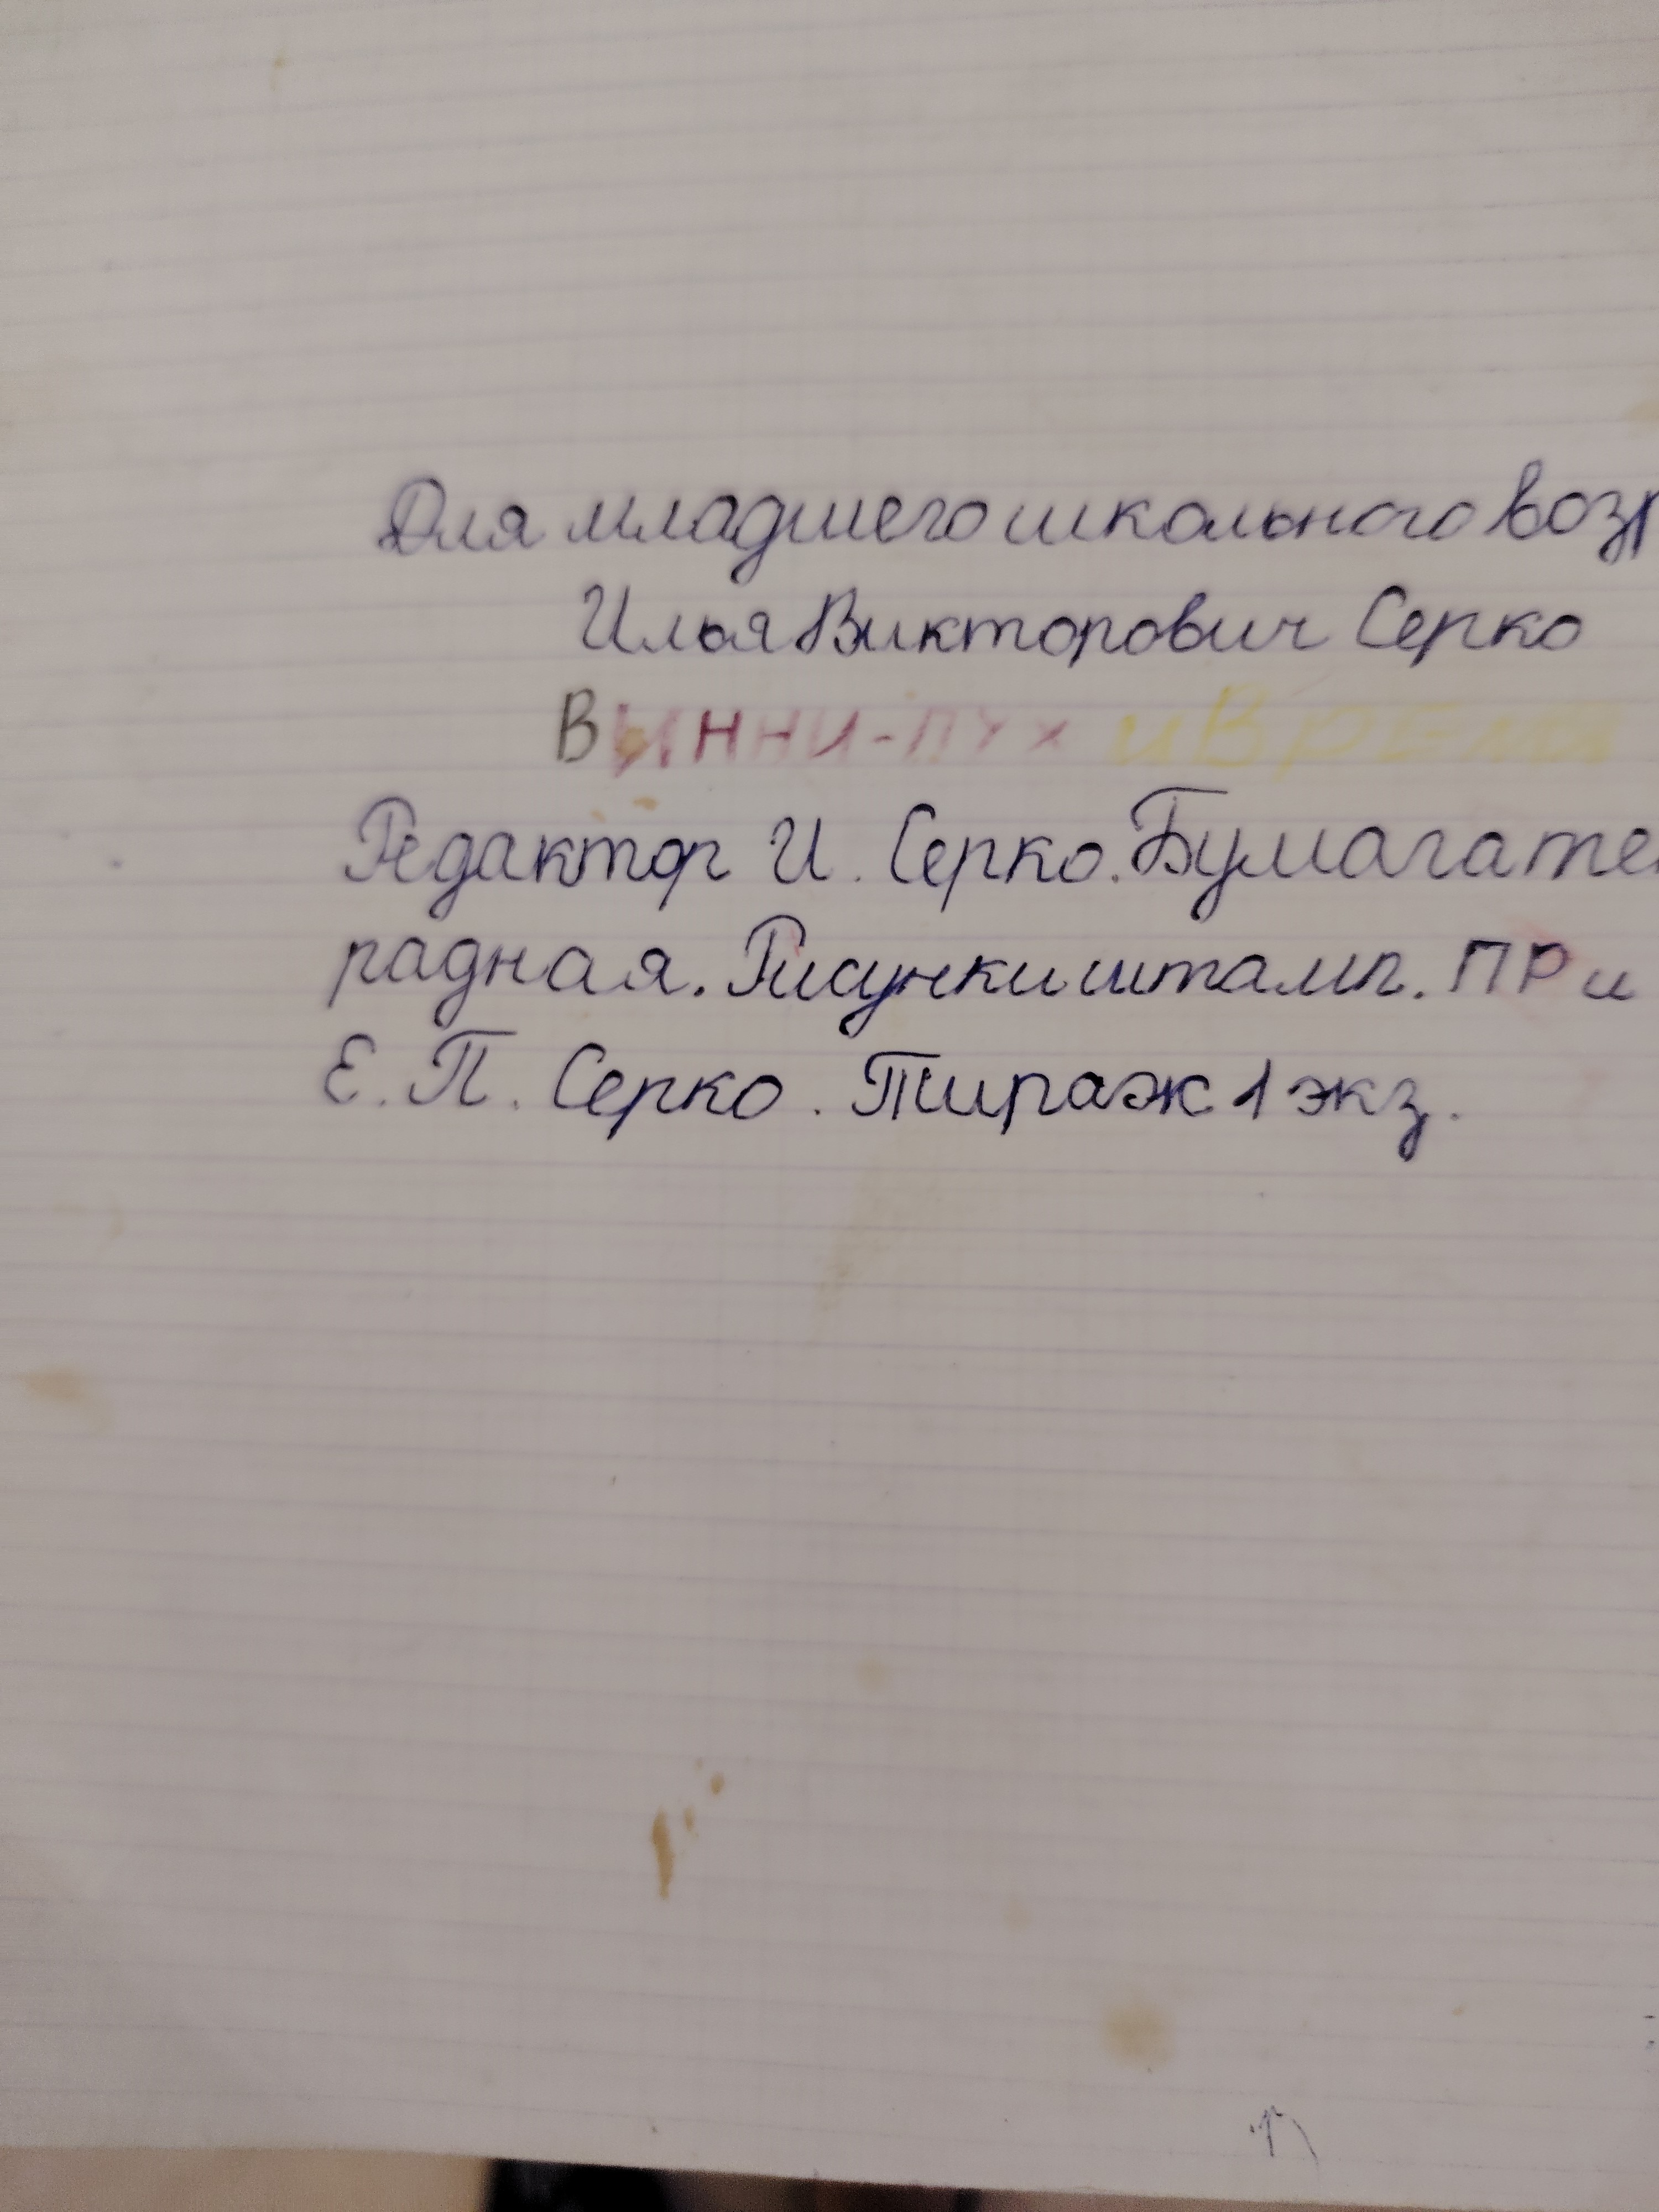 Для младшего школьного возр
Илья Викторович Серко
Вынни-пух и Время
Редактор И. Серко. Бумага тет
радная. Рисунки штамп. ПРи
Е. П. Серко. Тираж 1 экз.